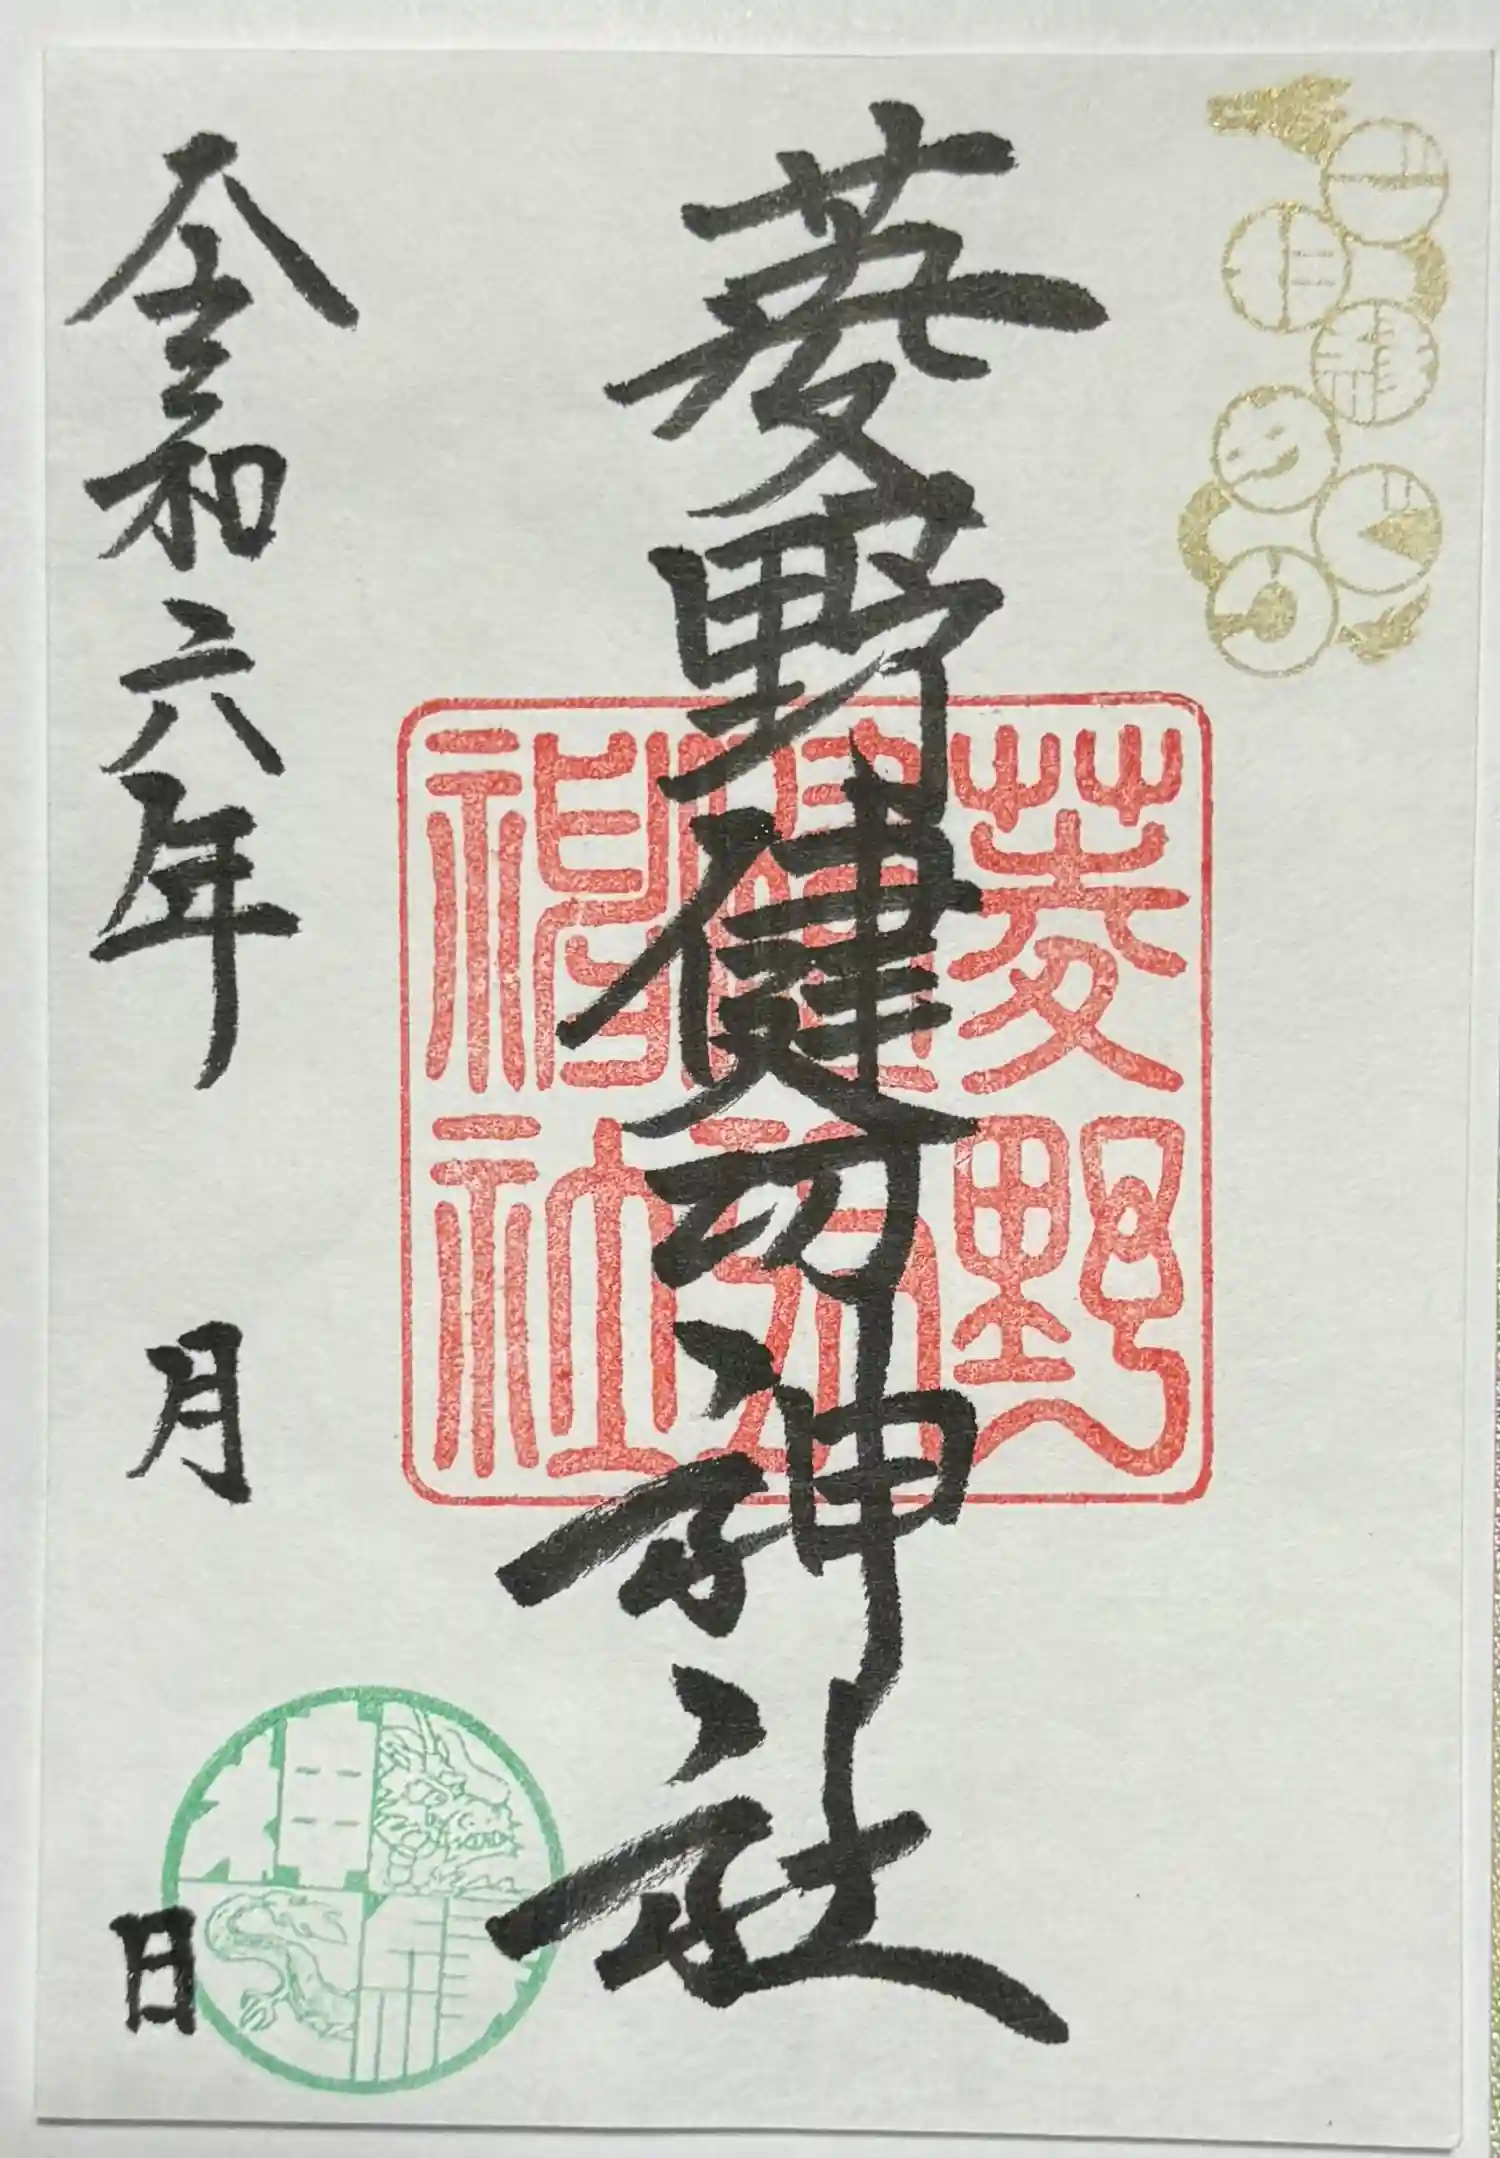 菱野健功神社
菱野
健功
神社
令和六年 月 日